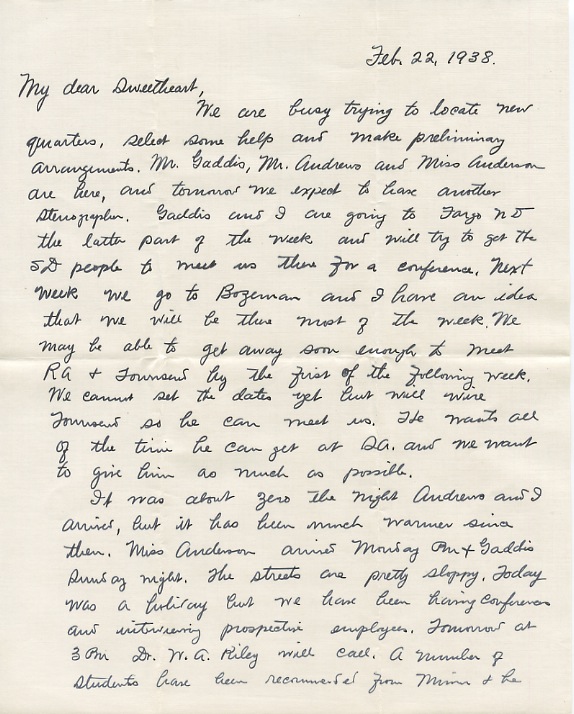 Feb. 22, 1938.
My dear Sweetheart,
We are busy trying to locate new
quarters, select some help and make preliminary
arrangements. Mr. Gaddis, Mr. Andrews and Miss Anderson
are here, and tomorrow we expect to have another
stenographer. Gaddis and I are going to Fargo ND
the latter part of the week and will try to get the
SD people to meet us there for a conference. Next
week we go to Bozeman and I have an idea
that we will be there most of the week. We
may be able to get away soon enough to meet
RA & Townsend by the first of the following week.
We cannot set the dates yet but will wire
Townsend so he can meet us. He wants all
of the time he can get at and we want
to give him as much as possible.
It was about zero the night Andrews and I
arrived, but it has been much warmer since
then. Miss Anderson arrived Monday Pm & Gaddis
Sunday night. The streets are pretty sloppy. Today
was a holiday but we have been having conferences
and interviewing prospective employees. Tomorrow at
3 Pm Dr. W. A. Riley will call. A number of
students have been recommended from Minn & he